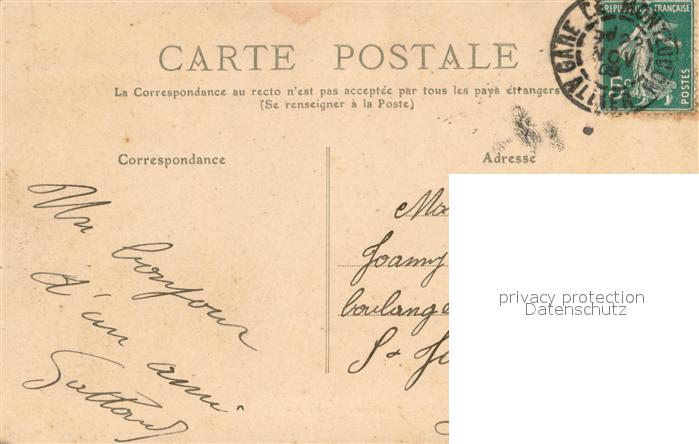 CARTE POSTALE
La Correspondance au recto n'est pas acceptée par tous les pays étrangers
(Se renseigner à la Poste)
REPUBLIQUE FRANÇAISE
POSTES
GARE
ALLIER
Correspondance
Adresse
Un bonjour
d'un ami
Joanny
boulange
St
privacy protection
Datenschutz